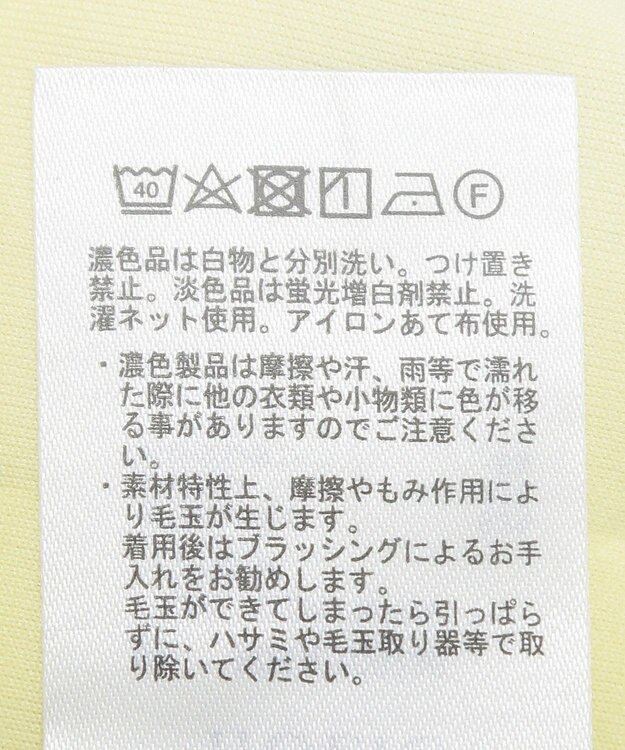 40 F
濃色品は白物と分別洗い。つけ置き
禁止。淡色品は蛍光増白剤禁止。洗
濯ネット使用。アイロンあて布使用。
・濃色製品は摩擦や汗、雨等で濡れ
た際に他の衣類や小物類に色が移
る事がありますのでご注意くださ
い。
・素材特性上、摩擦やもみ作用によ
り毛玉が生じます。
着用後はブラッシングによるお手
入れをお勧めします。
毛玉ができてしまったら引っぱら
ずに、ハサミや毛玉取り器等で取
り除いてください。